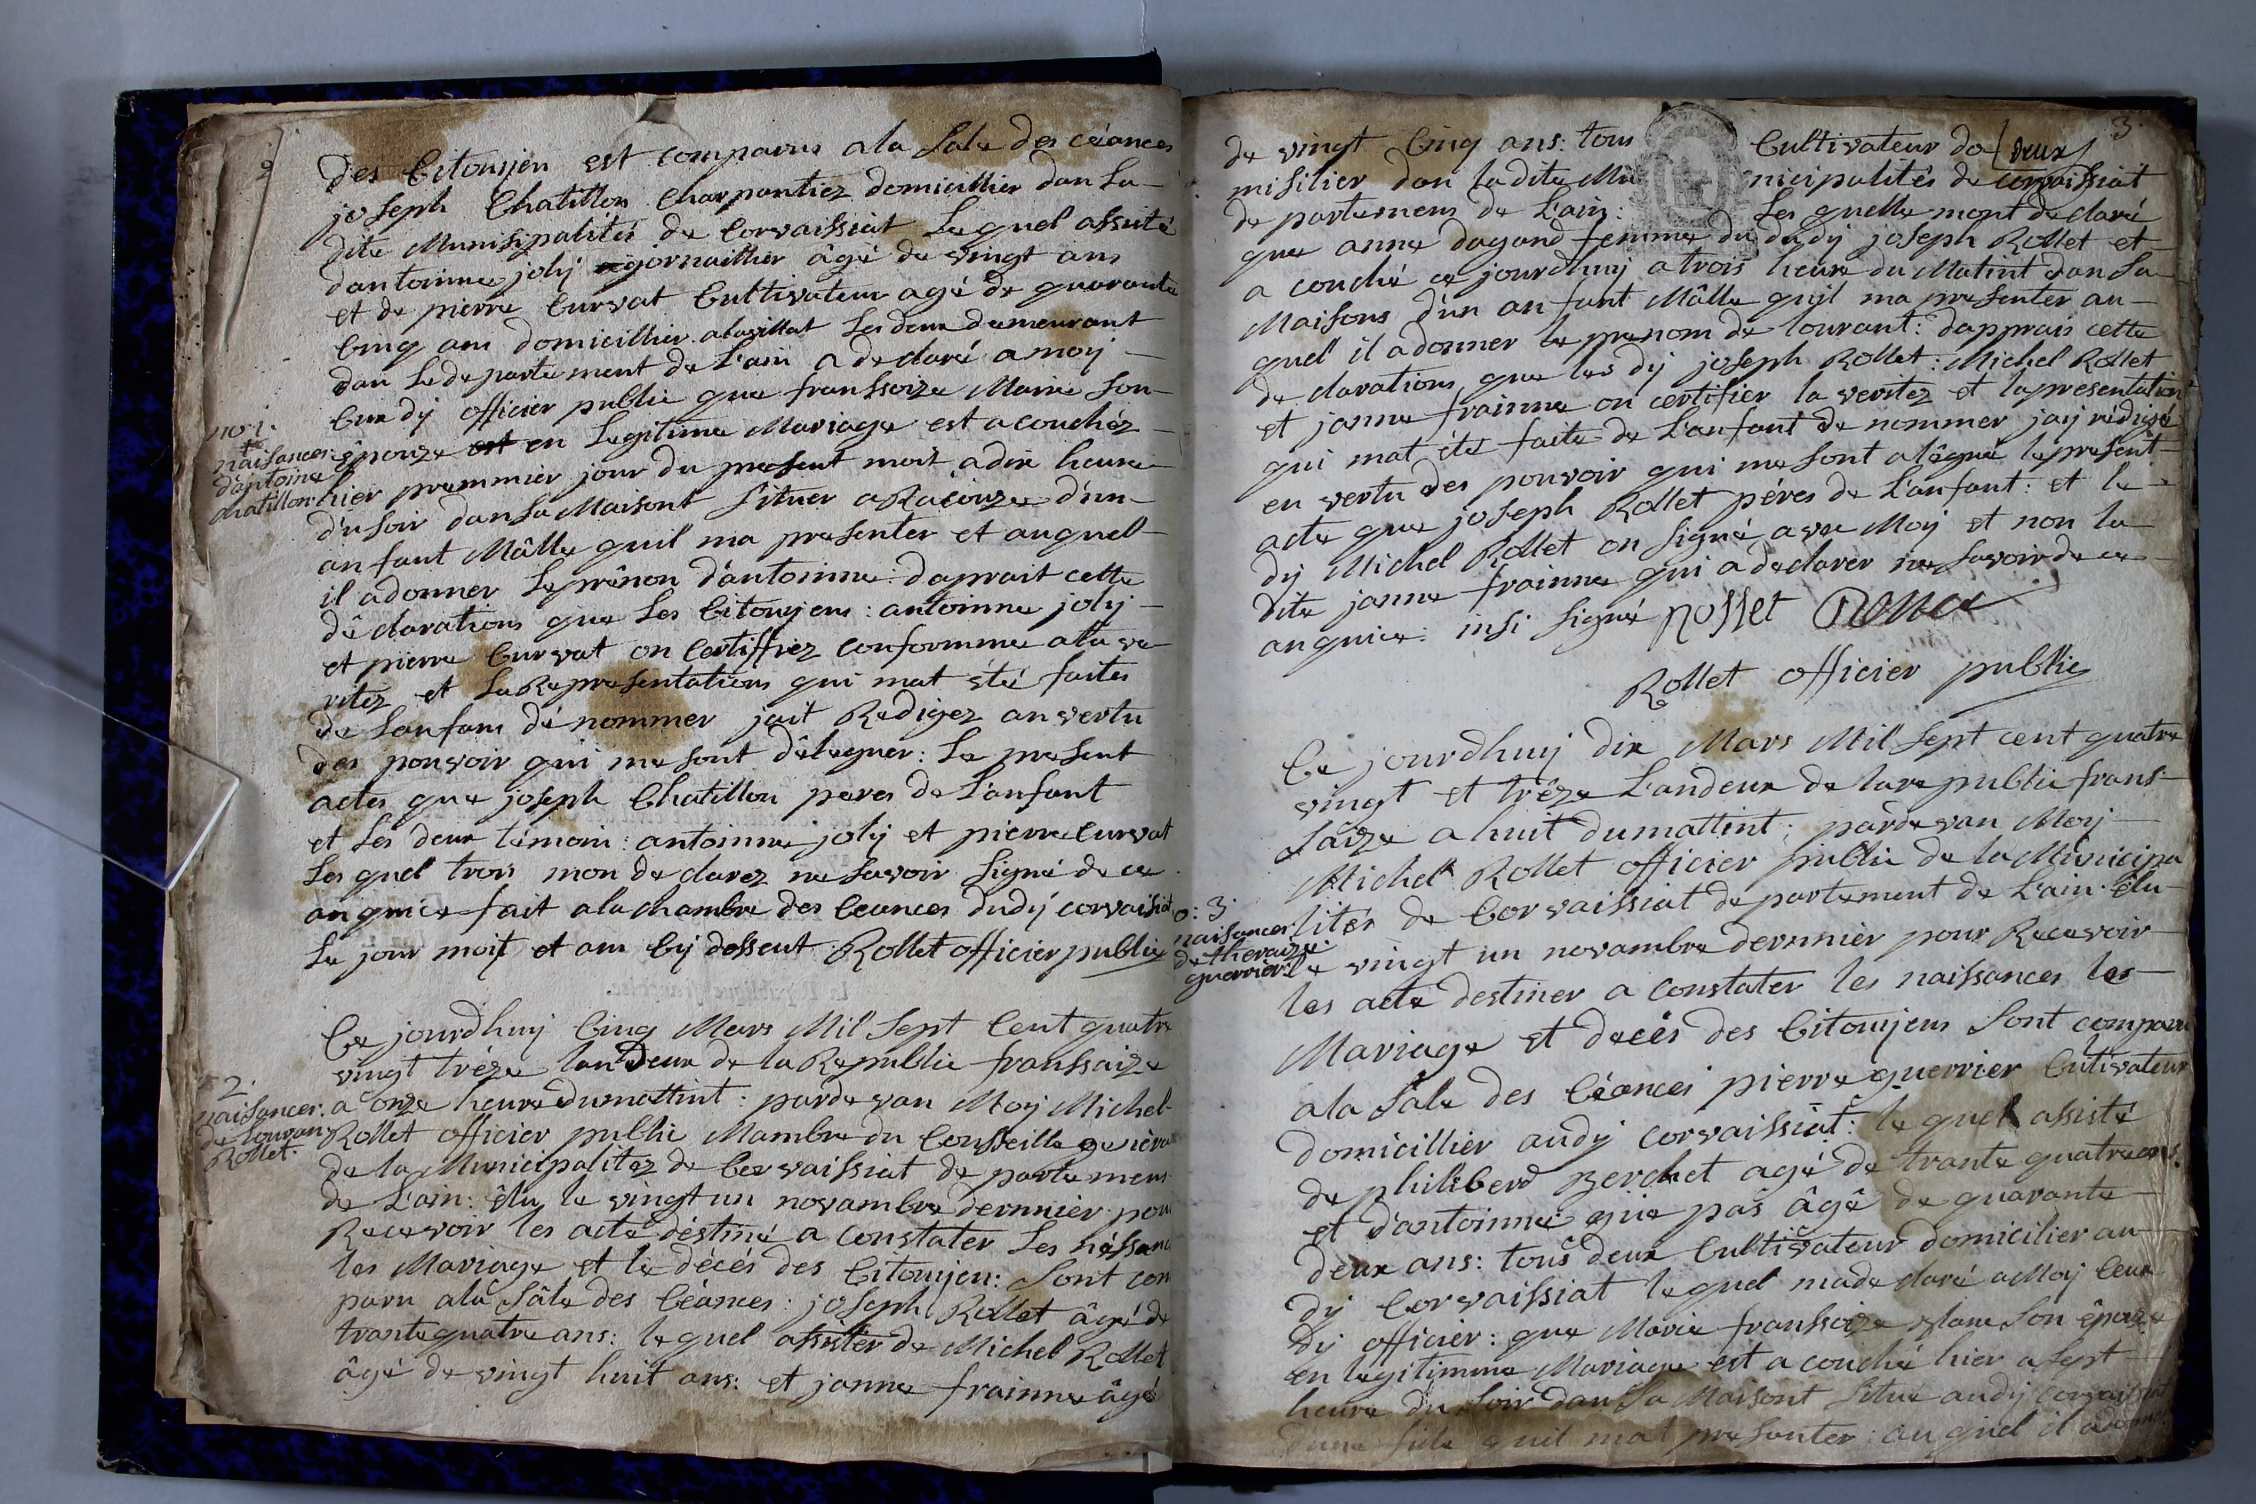 des Citoujen est comparus a la Sale des céances
joseph Chatillon Charpantiez domicillier dan La
dite Munisipalités de Corvaissiat Le quel assité
dantoinne joly jornaillier âgé de vingt ans
et de pierre Curvat Cultivateur agé de quarante
Cinq ans domicillier alavillat Les deux demeurant
dan Le departement de L'ain a declaré a moÿ
Cui dÿ officier public que franssoize Marie Son
no: 1.
naisances
d'antoine
chatillon
épouze en Legitime Mariage est acouchéz
hier premmier jour du present moit a dix heure
du soir dan Sa Maisont Situer a Racouze d'un
anfant Mâlle quil ma presenter et auquel
il adonner Le prênon d'antoinne: daprait cette
dêclarations que Les Citoujens: antoinne joly
et pierre Curvat on Certiffiez conformme ala ve
ritez et La Representations qui mat été faites
de Lanfans dénommer jait Redigez an vertu
des pouvoir qui me sont dêleguer: Le present
actes que joseph Chatillon peres de L'anfant
et Les deux témoin: antoinne joly et pierre Curvat
Les quel trois mon declarez ne Savoir Signé de ce
anquice fait ala chambre des Ceances dudÿ corvaissiat
Le jour moit et an Cÿ dessent Rollet officier public
Ce jourdhuÿ Cinq Mars Mil Sept Cent quatre
vingt tréze lan deux de la Republic franssaize
2.
naisances
de louran
Rollet.
a onze heure dumattint: pardevan Moÿ Michel
Rollet officier public Mambre du Consseille genéra
de la Municipalitez de Corvaissiat departemens
de L'ain: élu le vingt un novambre dernnier pour
Recevoir les acte déstiné a Constater Les néssanc
les Mariage et le décés des Citoujen: Sont com
paru ala Sâle des Céances: joseph Rollet âgé de
trante quatre ans: le quel assister de Michel Rollet
âgé de vingt huit ans: et janne frainne âgé
3.
deux
de vingt Cinq ans: tous Cultivateur do
misilier dan ladite Municipalités de corvaissiat
departemens de L'ain: Les quelle mont declaré
que anne dagand femme du dudÿ joseph Rollet et
a couché ce jourdhuÿ atrois heure du Matint dan Sa
Maisons d'un anfant Mâlle quÿl ma presenter au
quel il adonner le prenom de lourant: dapprais cette
declarations que les dÿ joseph Rollet: Michel Rollet
et janne frainne on certifier la veritez et la presentation
qui mat été faite de L'anfant de nommer jaÿ rédigé
en vertu des pouvoir qui me sont alégué le present
acte que joseph Rollet péres de L'anfant: et le
dÿ Michel Rollet on Signé avec Moÿ et non la
dite janne frainne qui a declarer ne Savoir de ce
anquice: insi Signé Rollet Rollet
Rollet officier public
Ce jourdhuÿ dix Mars Mil Sept cent quatre
vingt et tréze L'andeux de la republic frans
saize a huit dumattint: pardevan Moÿ
Michel Rollet officier public de la Municipa
o: 3.
naisances
de theraize
guerrier
lités de Corvaissiat departement de L'ain: élu
le vingt un novambre dernnier pour Recevoir
les acte destiner a constater les naissances les
Mariage et decés des Citoujens Sont comparu
ala Sale des Céances pierre guerrier Cutivateur
domicillier audÿ corvaissiat: le quel assisté
de philiberd Berchet agé de trante quatre ans
et d'antoinne guie pas âgé de quarante
deux ans: tous deux Cultivateur domicilier au
dÿ Corvaissiat le quel ma declaré a Moÿ Ceux
dÿ officier: que Marie franssoize Son épouze
en legitimme Mariage est acouché hier a Sept
heure du Soir dan Sa Maisont Situé audÿ corvaissiat
d'une fille quil mat presenter: auquel il adonner